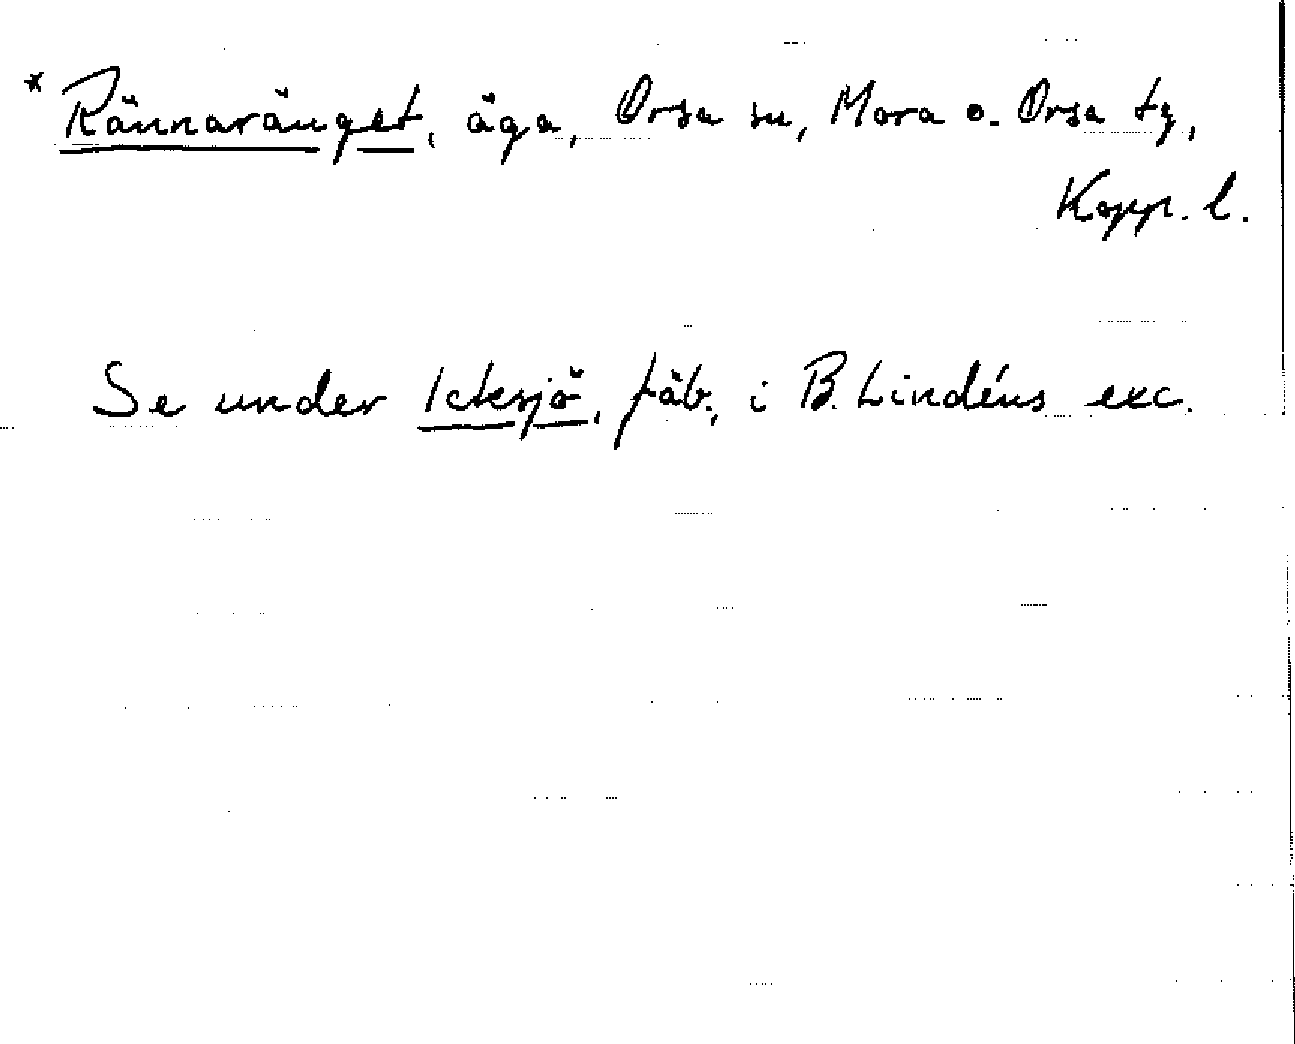 * Rännaränget, äga, Orsa sn, Mora o. Orsa tg,
Kopp. l.
Se under Icktsjö, fäb., i B. Lindéns exc.